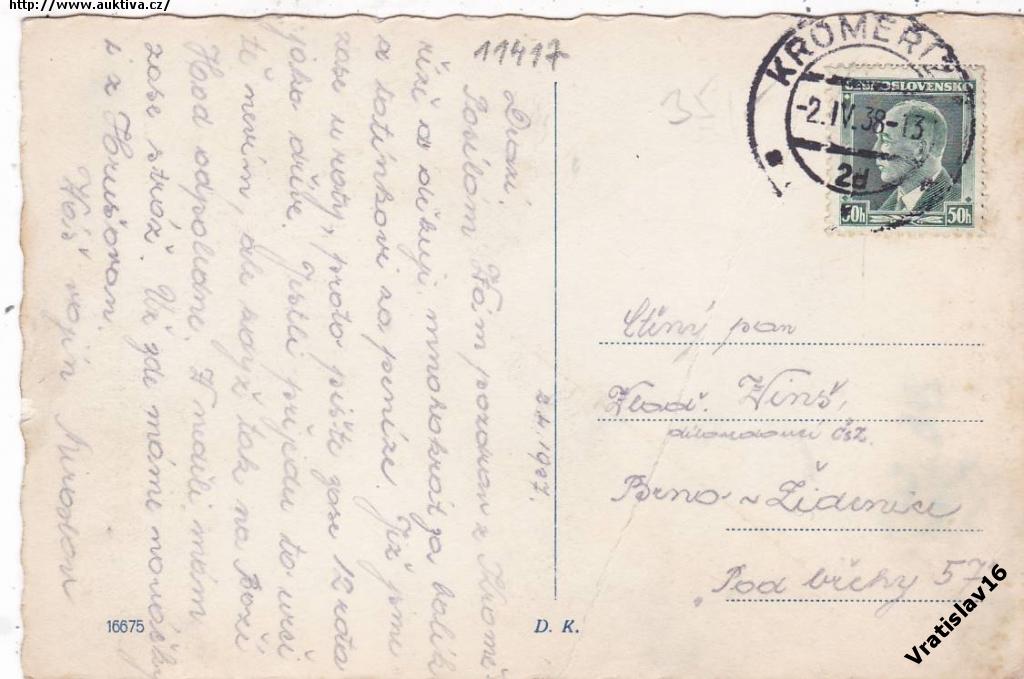 http://www.auktiva.cz/
11417
Drazí.
Posílám Vám pozdrav z Kromě-
říže a děkuji mnohokrát za balík
a tatínkovi za peníze. Již jsme
zase u roty, proto pište zase 12 rota
jako dříve. Jestli přijedu to určí
tě nevím, ale když tak na Boží
Hod odpoledne. V neděli mám
zase stráž. Už zde máme nováčky
i z Hrušovan.
Váš vojín Miroslav
2.IV.1937.
16675
D. K.
35
KROMĚŘÍŽ
-2.IV.38-13
2d
ČESKOSLOVENSKO
50h 50h
Ctěný pan
Vlad. Vinš,
čsz.
Brno - Židenice
Pod břehy 57
Vratislav16